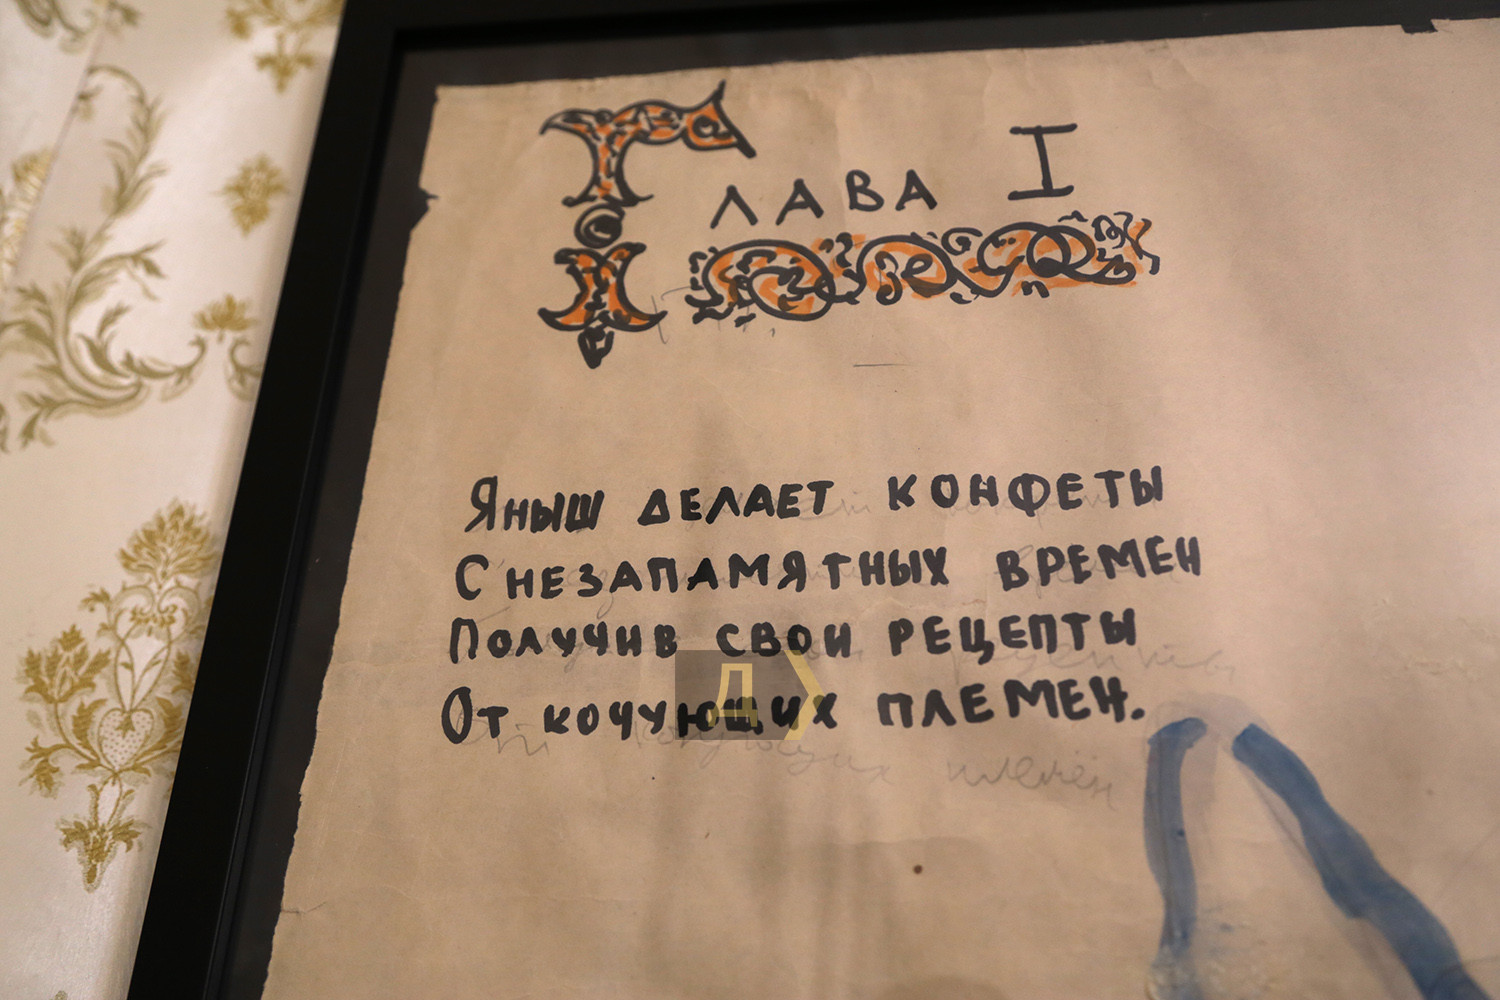 Глава I
Яныш делает конфеты
С незапамятных времен
Получив свои рецепты
От кочующих племен.
Д